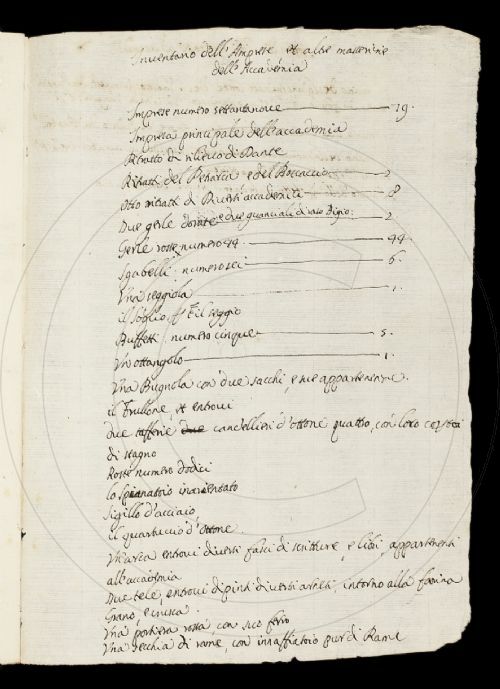 Inventario dell'Imprese et altre masserizie
dell'Accademia
Imprese numero settantanove 79.
Impresa principale dell'accademia
Ritratto di rilievo di Dante
Ritratti del Petrarca e del Boccaccio 2
Otto ritratti di diversi accademici 8
Due gerle dorate e due guanciali di raso 2
Gerle rosse numero 44. 44.
Sgabelli numero sei 6.
Una seggiola 1.
il soglio il seggio
Buffetti numero cinque 5.
Un ottangolo 1.
Una Bugnola con due sacchi, e sue appartenenze.
il Frullone, et entrovi
due tafferie due candellieri d'ottone quattro, con loro
di stagno
Rotte numero dodici
lo spianatoio inargentato
Sigillo d'acciaio,
il quartuccio d'ottone
Un'arca entrovi diversi fasci di scritture, e libri, appartenenti
all'accademia
Due tele, entrovi dipinti diversi arnesi, intorno alla farina
Grano, e crusca.
Una portiera rossa, con suo ferro
Una secchia di rame, con innaffiatoio pur di Rame